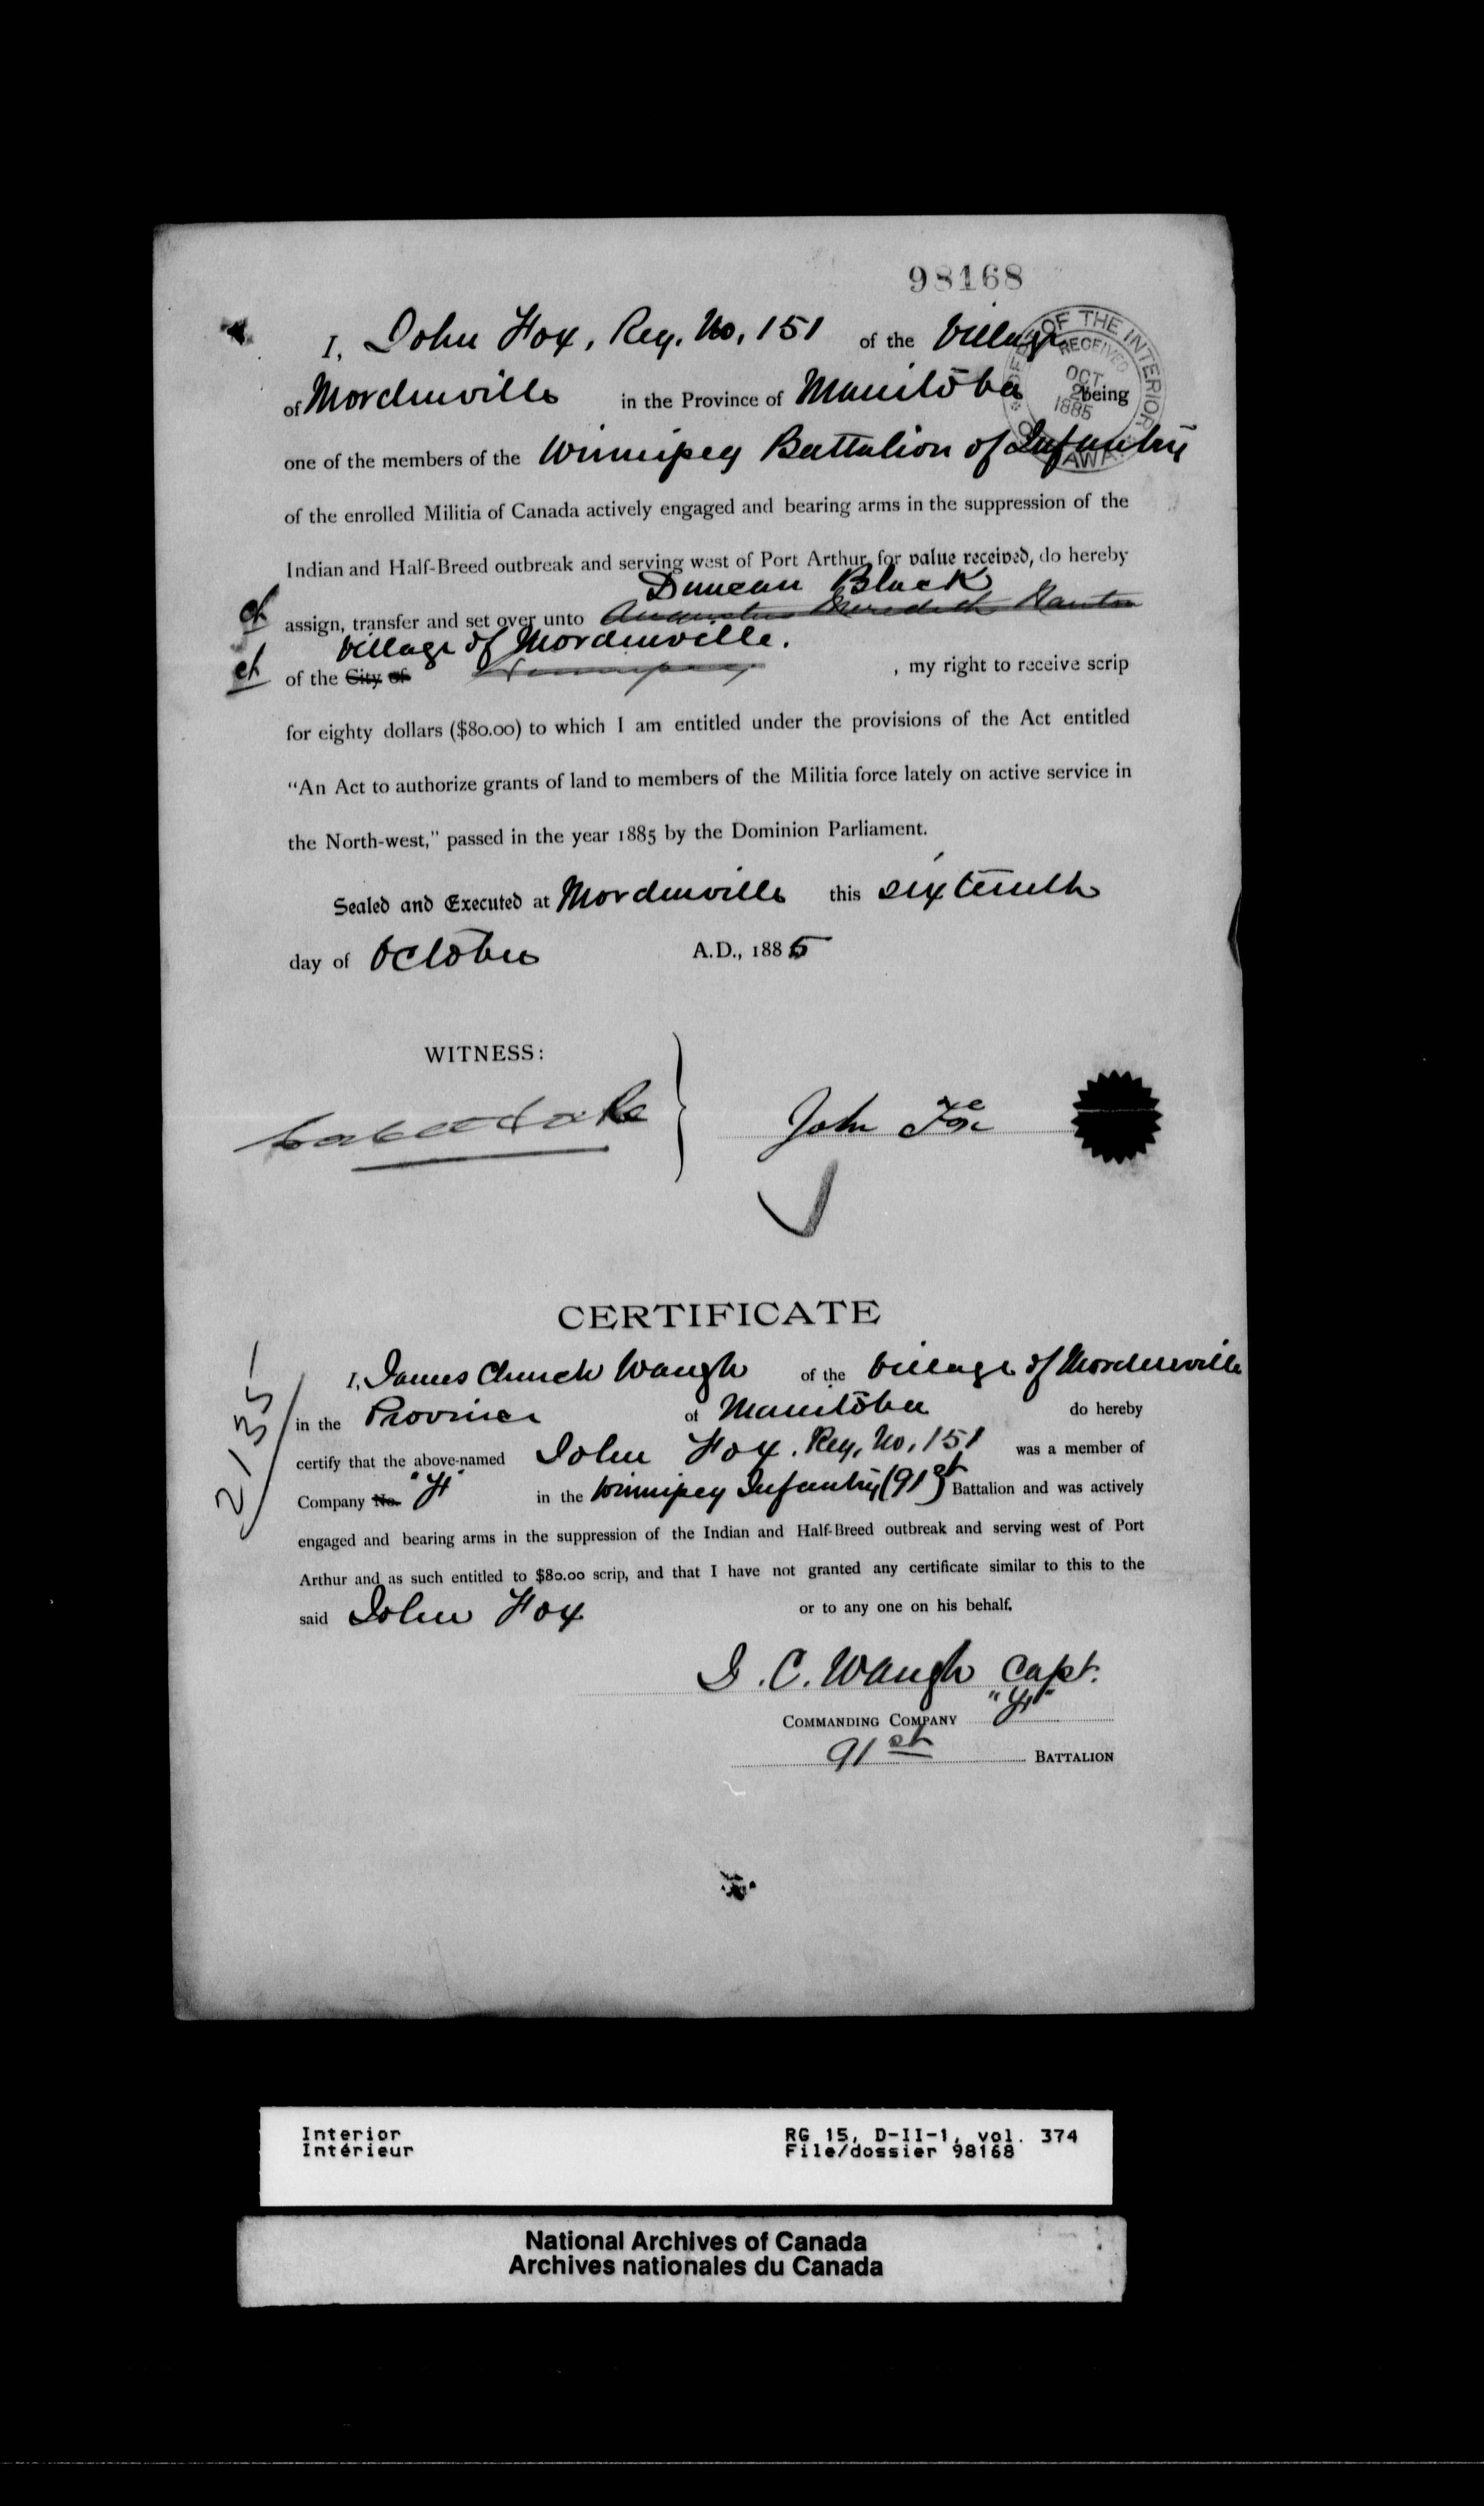 98168
I, John Fox, Reg. No, 151 of the Village
of Mordenville in the Province of Manitoba being
DEPT OF THE INTERIOR OTTAWA RECEIVED OCT 1885
one of the members of the Winnipeg Battalion of Infantry
of the enrolled Militia of Canada actively engaged and bearing arms in the suppression of the
Indian and Half-Breed outbreak and serving west of Port Arthur, for value received, do hereby
Duncan Black
assign, transfer and set over unto Augustus Meredith Nanton
Village of Mordenville.
of the City of Winnipeg , my right to receive scrip
for eighty dollars ($80.00) to which I am entitled under the provisions of the Act entitled
“An Act to authorize grants of land to members of the Militia force lately on active service in
the North-west,” passed in the year 1885 by the Dominion Parliament.
Sealed and Executed at Mordenville this sixteenth
day of October A.D., 1885
WITNESS:
John Fox
CERTIFICATE
2135
I, James Church Waugh of the Village of Mordenville
in the Province of Manitoba do hereby
certify that the above-named John Fox. Reg, No, 151 was a member of
Company No. "H" in the Winnipeg Infantry (91st) Battalion and was actively
engaged and bearing arms in the suppression of the Indian and Half-Breed outbreak and serving west of Port
Arthur and as such entitled to $80.00 scrip, and that I have not granted any certificate similar to this to the
said John Fox or to any one on his behalf.
J. C. Waugh Capt.
COMMANDING COMPANY "H"
91st BATTALION
Interior RG 15, D-II-1, vol. 374
Intérieur File/dossier 98168
National Archives of Canada
Archives nationales du Canada